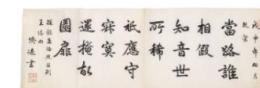 當路誰
相假
知音世
所稀
祇應守
寂寞
還掩故
園扉